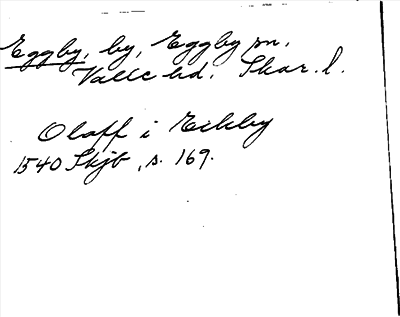 Eggby, by, Eggby sn.
Valle hd. Skar. l.
Olaff i Eckby
1540 Skjb, s. 169.